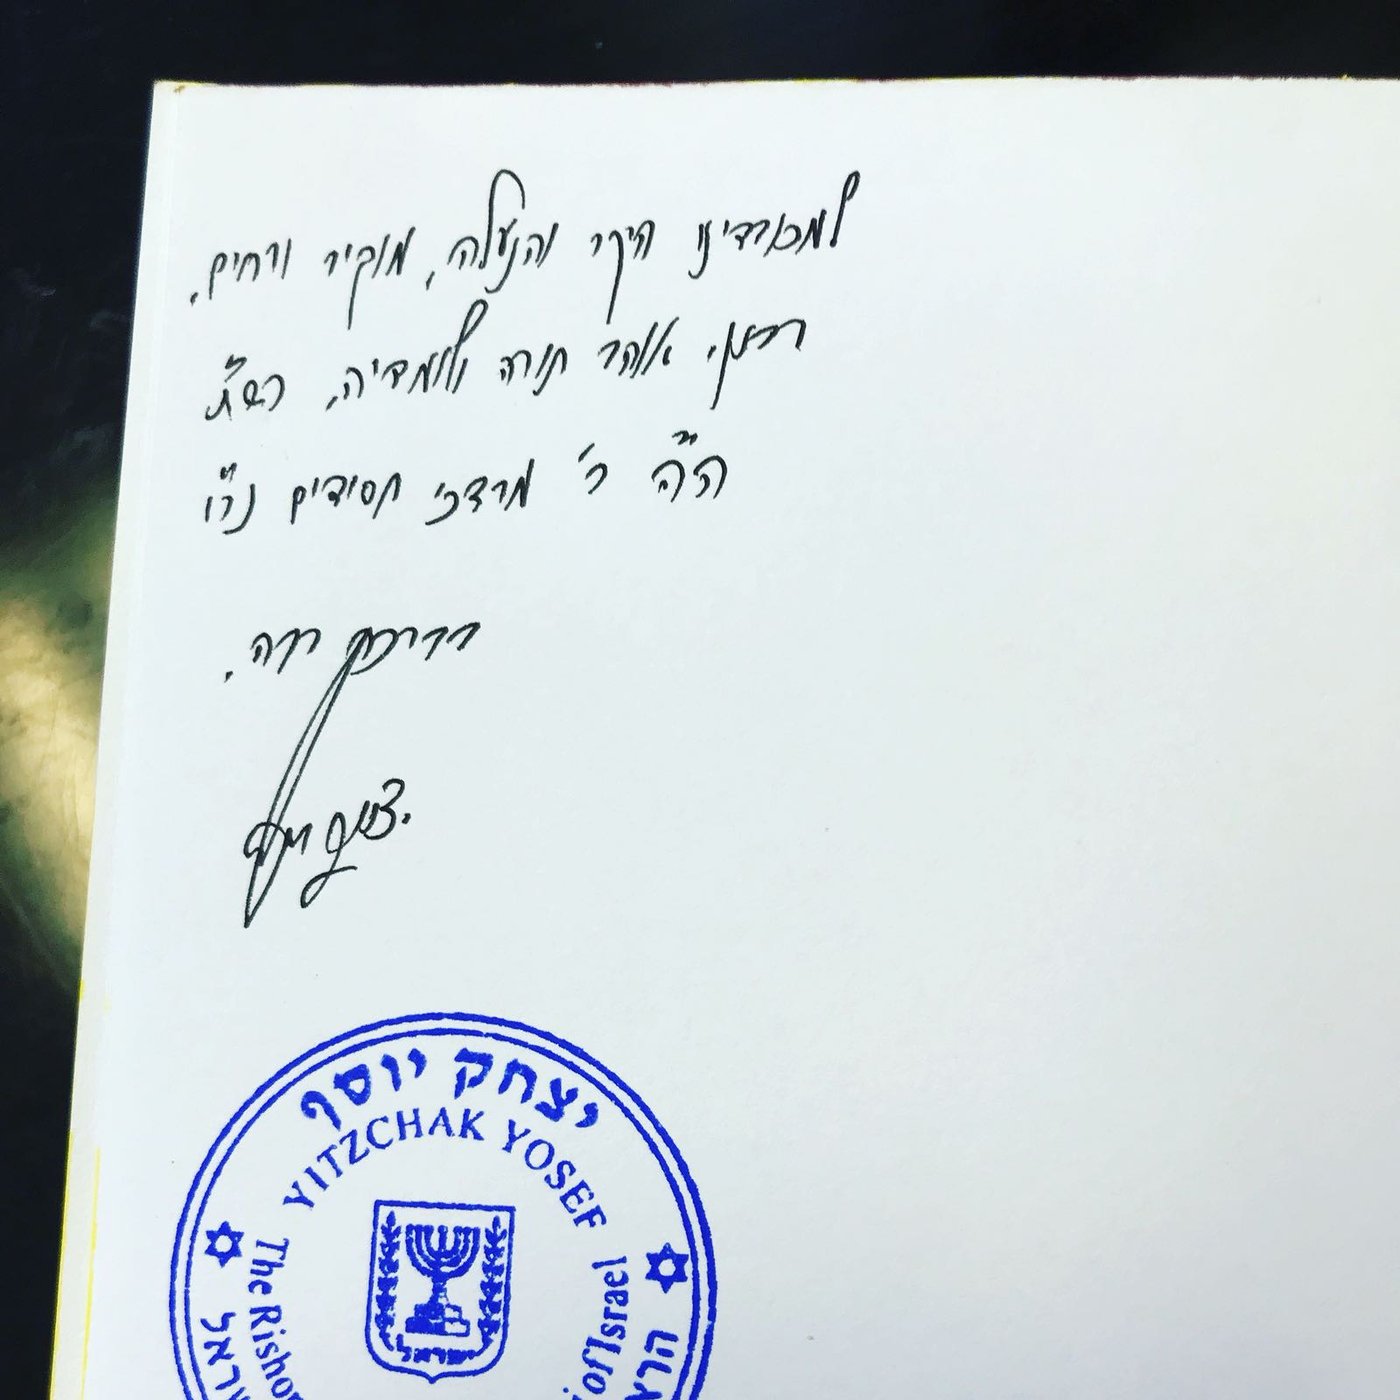 למכובדינו היקר והנעלה, מוקיר ורחים,
רבנן, אוהב תורה ולומדיה, כש"ת
ה"ה ר' מרדכי חסידים נר"ו
בברכה רבה,
יצחק יוסף
יצחק יוסף
YITZCHAK YOSEF
The Rishon
of Israel
ישראל